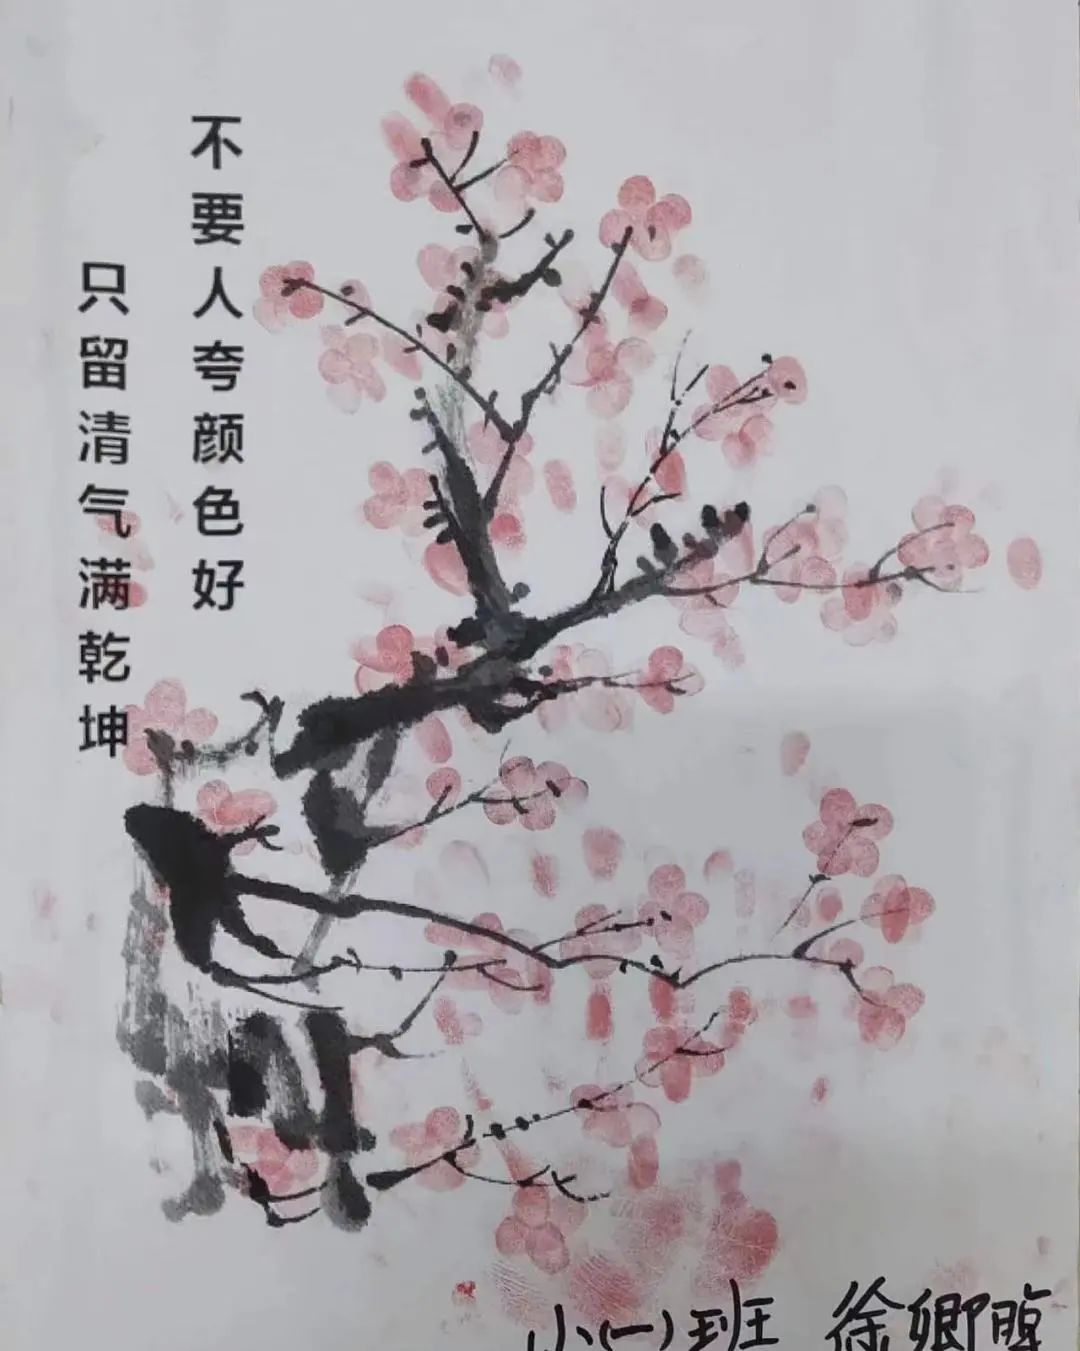 不要人夸颜色好
只留清气满乾坤
小(一)班 徐卿